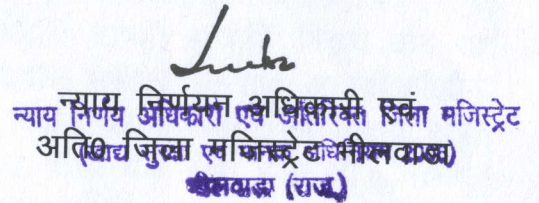 न्याय निर्णयन अधिकारी एवं
न्याय निर्णय अधिकारी एवं अतिरिक्त जिला मजिस्ट्रेट
अति0 जिला मजिस्ट्रेट भीलवाडा
भीलवाडा (राज.)